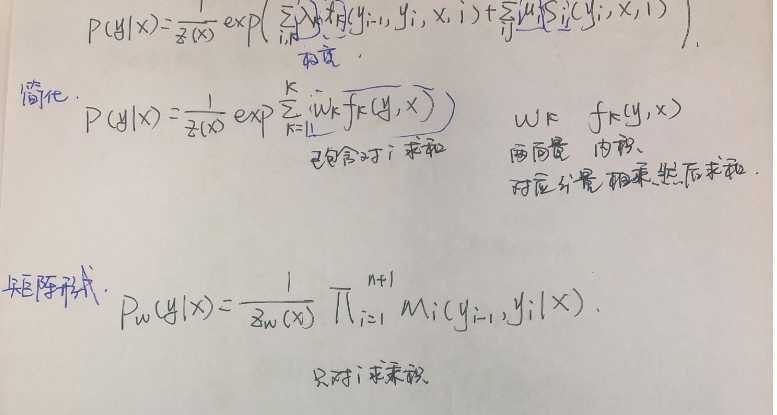 P(y|x) = 1/Z(x) exp( Σ_{i,k} λ_k t_k(y_{i-1}, y_i, x, i) + Σ_{i,j} μ_j S_j(y_i, x, i) ).
简化. P(y|x) = 1/Z(x) exp Σ_{k=1}^{K} w_k f_k(y, x)
已包含对 i 求和
w_k f_k(y, x)
两向量 内积.
对应分量相乘、然后求和.
矩阵形式. P_w(y|x) = 1/Z_w(x) ∏_{i=1}^{n+1} M_i(y_{i-1}, y_i|x).
只对 i 求乘积